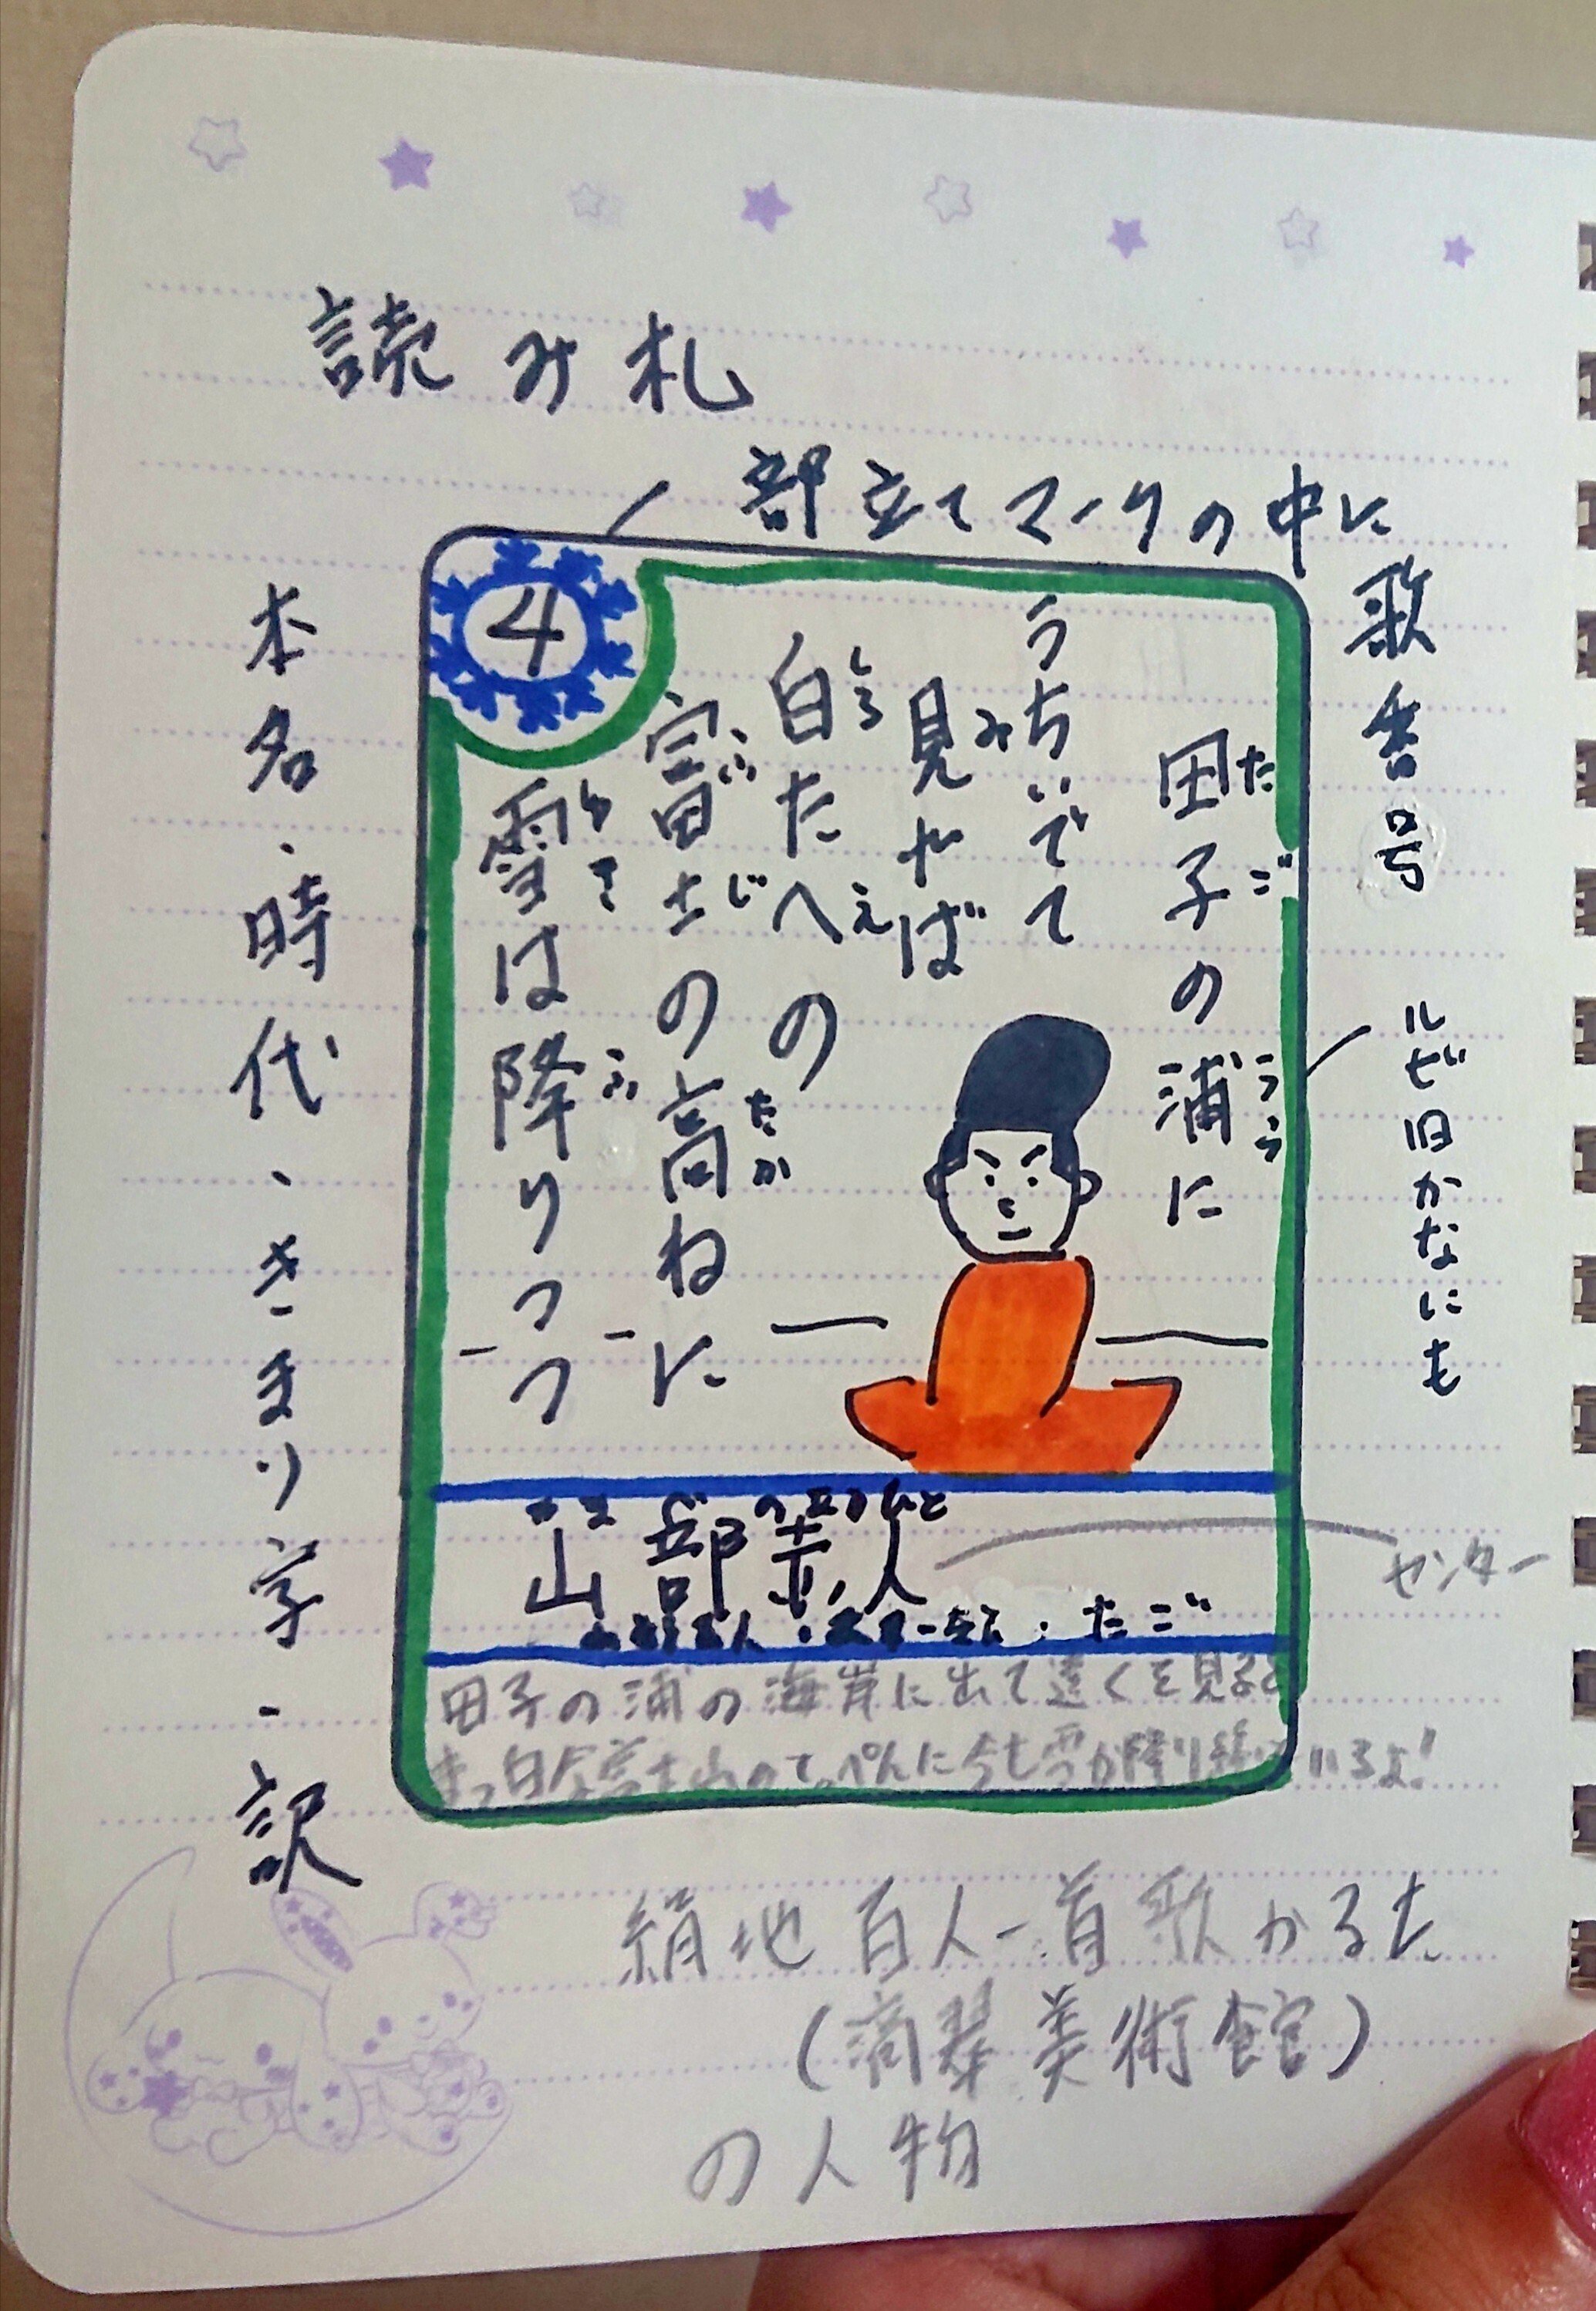 読み札
部立てマークの中に
歌番号
ルビ旧かなにも
4
田子の浦に
たご
うら
うちいでて
見やば
み
白たへの
しろ
え
富士の高ねに
ふじ
たか
雪は降りつつ
ゆき
ふ
山部赤人
やまべのあかひと
センター
たご
田子の浦の海岸に出て遠くを見ると
まっ白な富士山のてっぺんに今も雪が降り続いているよ!
本名・時代・きまり字・訳
絹地百人一首歌かるた
(滴翠美術館)
の人物